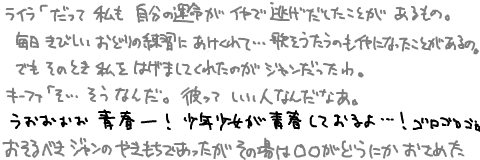 ライラ「だって 私も 自分の運命が イヤで 逃げだしたことが あるもの。
毎日 きびしい おどりの練習に あけくれて…歌そうたうのもイヤになったことがあるの。
でも そのとき 私を はげましてくれたのが ジャンだったわ。
キーファ「そ… そう なんだ。 彼って いい人なんだなあ。
うおおおお 青春ー！ 少年少女が 青春しておるよ…！ ゴロゴロゴロ
おそるべき ジャンの やきもちであったが その場は〇〇が どうにか おさめた